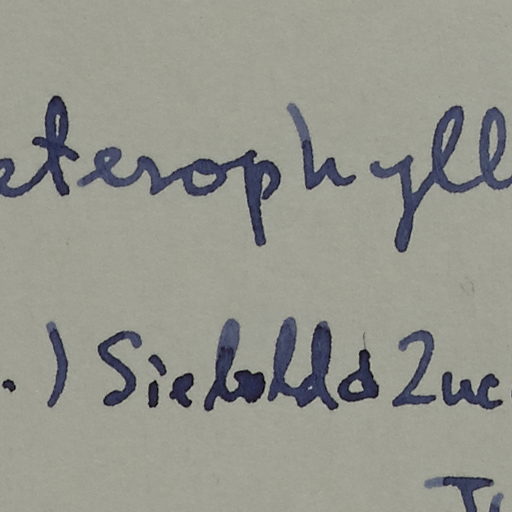 eterophyll
.) Siebold & Zuc